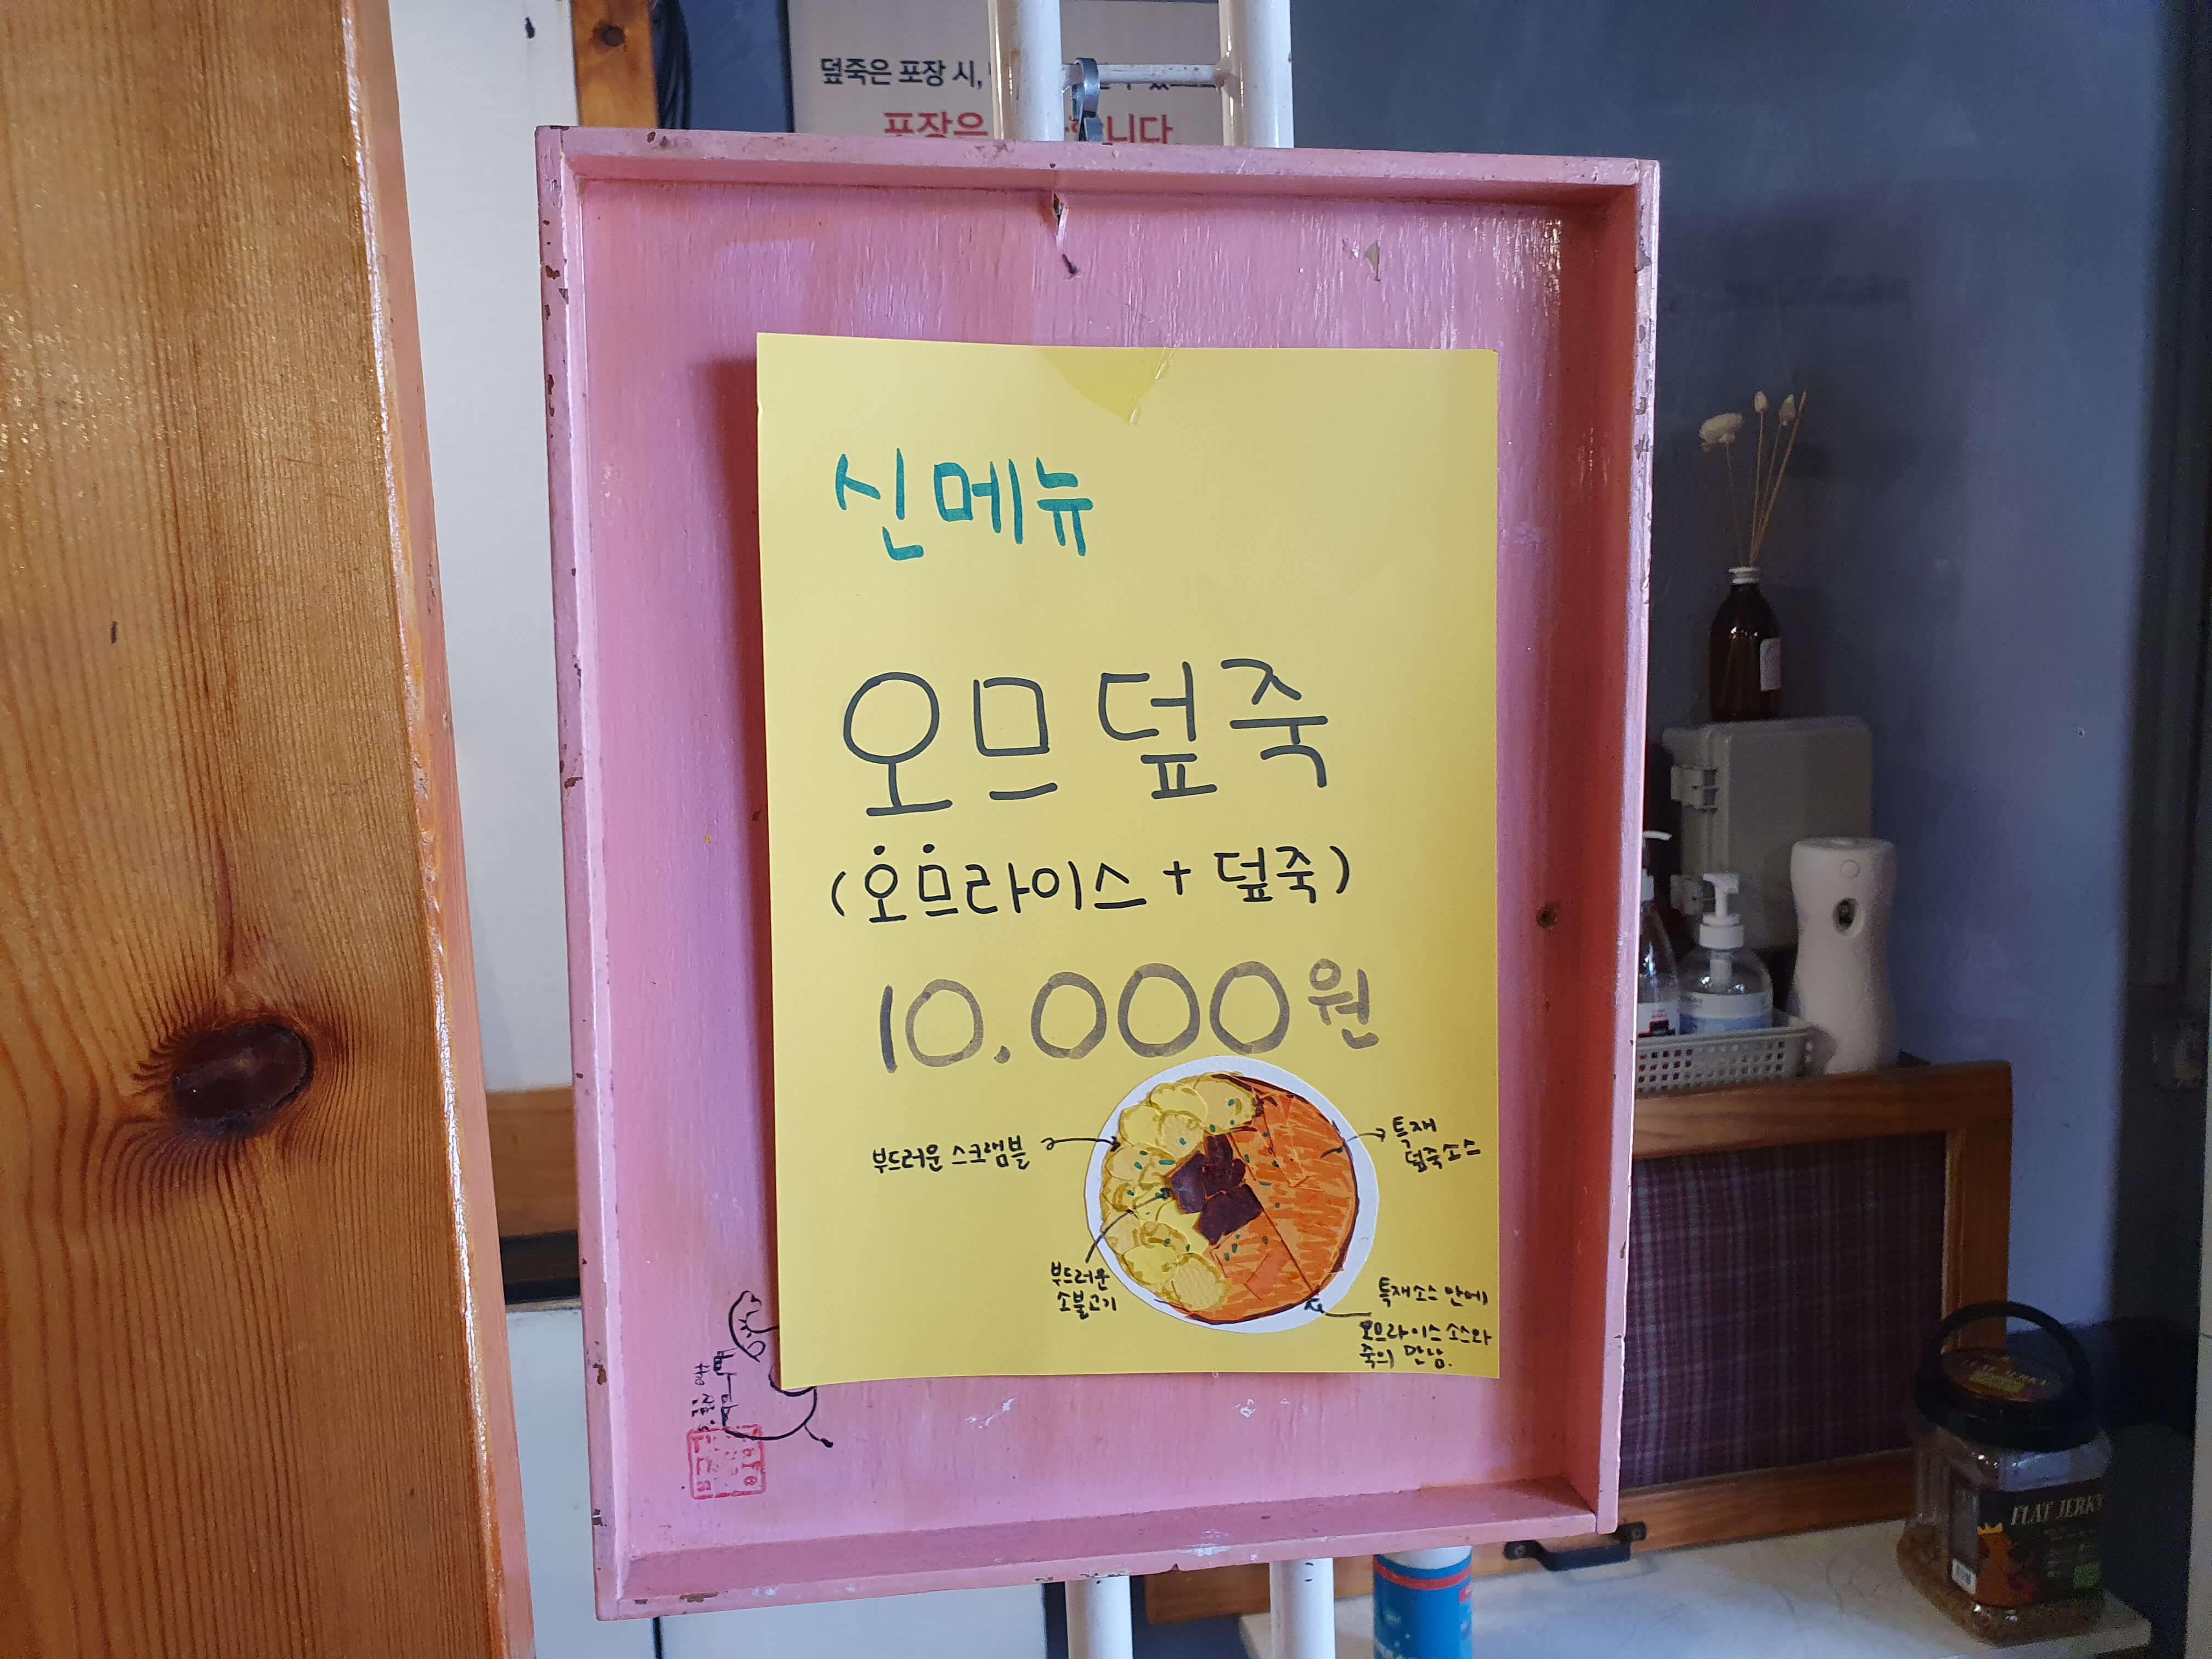 덮죽은 포장 시,
포장은
니다
신메뉴
오므덮죽
(오므라이스 + 덮죽)
10.000원
부드러운 스크램블
특재
덮죽소스
부드러운
소불고기
특재소스 안에
오므라이스 소스와
죽의 만남.
FLAT JERKY